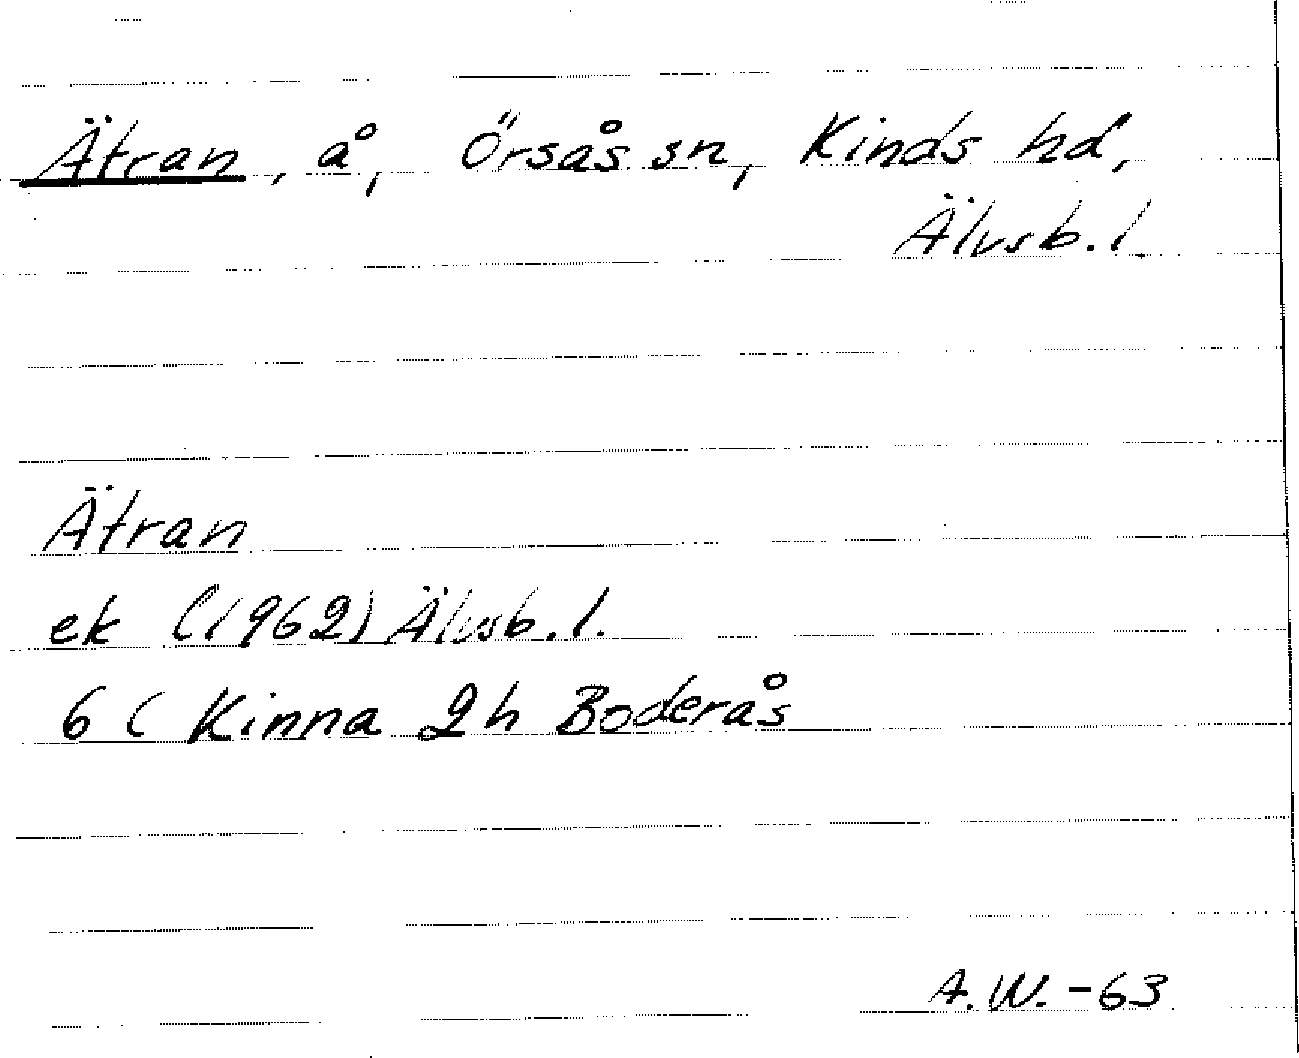 Ätran, å, Örsås sn, Kinds hd,
Älvsb. l.
Ätran
ek (1962) Älvsb. l.
6 C Kinna 2h Boderås
A.W. -63